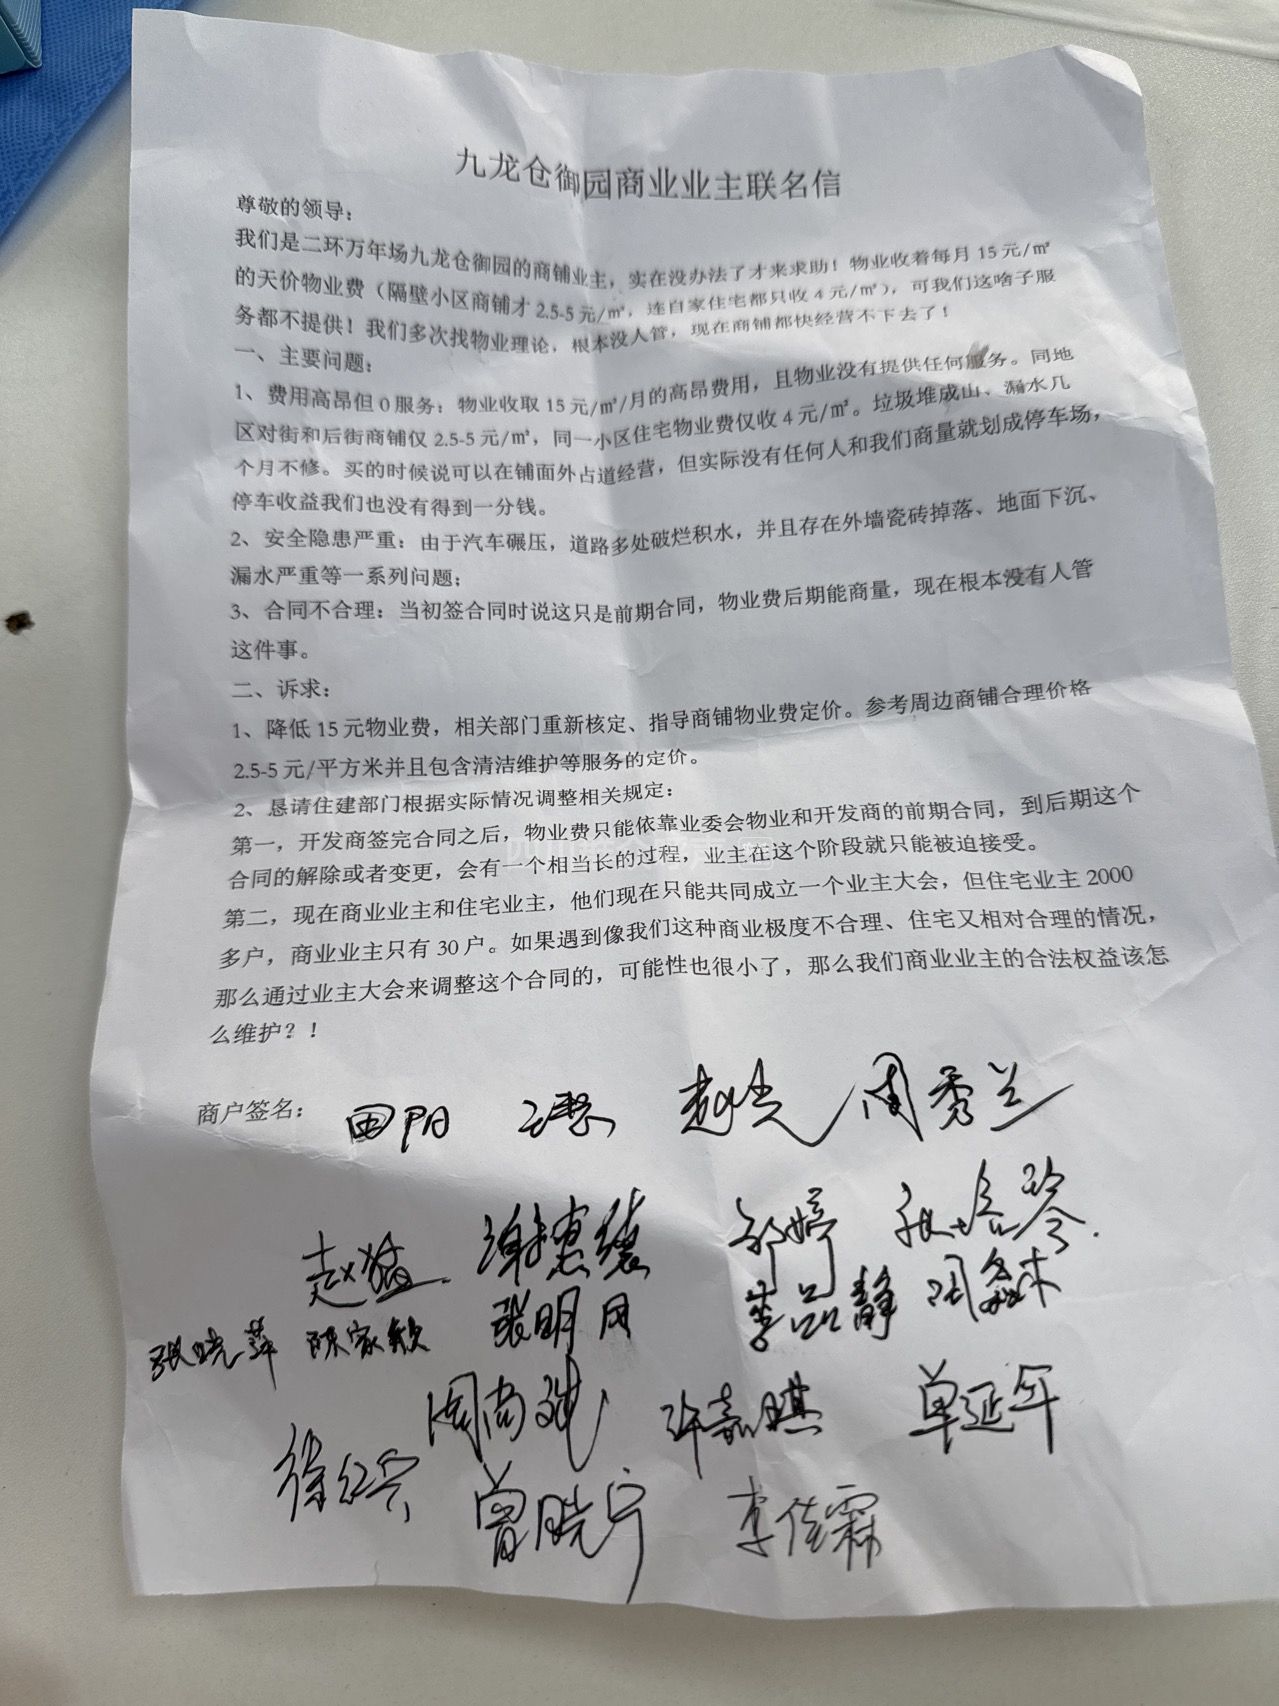 九龙仓御园商业业主联名信
尊敬的领导：
我们是二环万年场九龙仓御园的商铺业主，实在没办法了才来求助！物业收着每月 15 元/㎡
的天价物业费（隔壁小区商铺才 2.5-5 元/㎡，连自家住宅都只收 4 元/㎡），可我们这啥子服
务都不提供！我们多次找物业理论，根本没人管，现在商铺都快经营不下去了！
一、主要问题：
1、费用高昂但 0 服务：物业收取 15 元/㎡/月的高昂费用，且物业没有提供任何服务。同地
区对街和后街商铺仅 2.5-5 元/㎡，同一小区住宅物业费仅收 4 元/㎡。垃圾堆成山、漏水几
个月不修。买的时候说可以在铺面外占道经营，但实际没有任何人和我们商量就划成停车场，
停车收益我们也没有得到一分钱。
2、安全隐患严重：由于汽车碾压，道路多处破烂积水，并且存在外墙瓷砖掉落、地面下沉、
漏水严重等一系列问题；
3、合同不合理：当初签合同时说这只是前期合同，物业费后期能商量，现在根本没有人管
这件事。
二、诉求：
1、降低 15 元物业费，相关部门重新核定、指导商铺物业费定价。参考周边商铺合理价格
2.5-5 元/平方米并且包含清洁维护等服务的定价。
2、恳请住建部门根据实际情况调整相关规定：
第一，开发商签完合同之后，物业费只能依靠业委会物业和开发商的前期合同，到后期这个
合同的解除或者变更，会有一个相当长的过程，业主在这个阶段就只能被迫接受。
第二，现在商业业主和住宅业主，他们现在只能共同成立一个业主大会，但住宅业主 2000
多户，商业业主只有 30 户。如果遇到像我们这种商业极度不合理、住宅又相对合理的情况，
那么通过业主大会来调整这个合同的，可能性也很小了，那么我们商业业主的合法权益该怎
么维护？！
商户签名： 田阳 周秀兰
郭婷
李品静
张晓萍 陈家钦 张明月
许嘉琪 单延年
徐红兵
曾晓宁 李佳霖